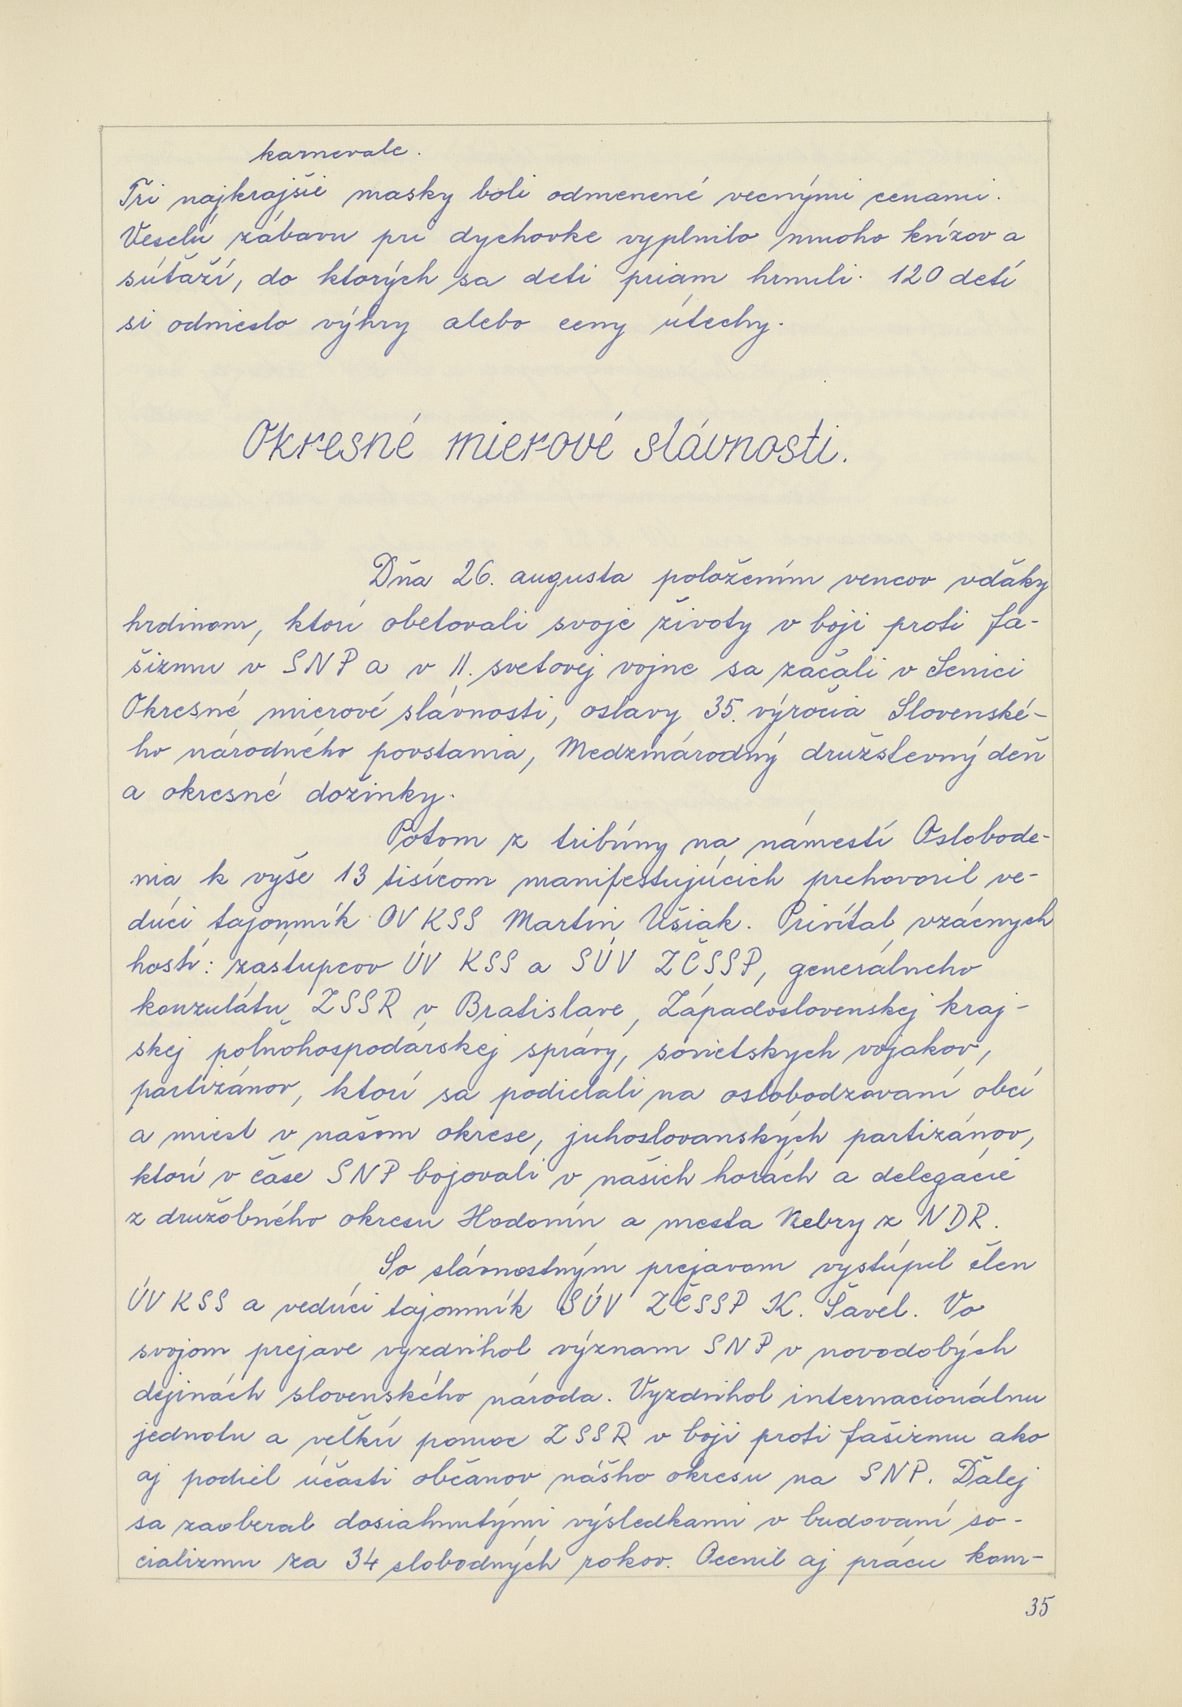 karnevale.
Tri najkrajšie masky boli odmenené vecnými cenami.
Veselú zábavu pri dychovke vyplnilo mnoho kvízov a
súťaží, do ktorých sa deti priam hrnuli. 120 detí
si odnieslo výhry alebo ceny útechy.
Okresné mierové slávnosti.
Dňa 26. augusta položením vencov vďaky
hrdinom, ktorí obetovali svoje životy v boji proti fa-
šizmu v SNP a v II. svetovej vojne sa začali v Senici
Okresné mierové slávnosti, oslavy 35. výročia Slovenské-
ho národného povstania, Medzinárodný družstevný deň
a okresné dožinky.
Potom z tribúny na námestí Oslobode-
nia k vyše 13 tisícom manifestujúcich prehovoril ve-
dúci tajomník OV KSS Martin Ušiak. Privítal vzácnych
hostí: zástupcov ÚV KSS a SÚV ZČSSP, generálneho
konzulátu ZSSR v Bratislave, Západoslovenskej kraj-
skej poľnohospodárskej správy, sovietskych vojakov,
partizánov, ktorí sa podielali na oslobodzovaní obcí
a miest v našom okrese, juhoslovanských partizánov,
ktorí v čase SNP bojovali v našich horách a delegácie
z družobného okresu Hodonín a mesta Nebry z NDR.
So slávnostným prejavom vystúpil člen
ÚV KSS a vedúci tajomník SÚV ZČSSP K. Šavel. Vo
svojom prejave vyzdvihol význam SNP v novodobých
dejinách slovenského národa. Vyzdvihol internacionálnu
jednotu a veľkú pomoc ZSSR v boji proti fašizmu ako
aj podiel účasti občanov nášho okresu na SNP. Ďalej
sa zaoberal dosiahnutými výsledkami v budovaní so-
cializmu za 34 slobodných rokov. Ocenil aj prácu kom-
35